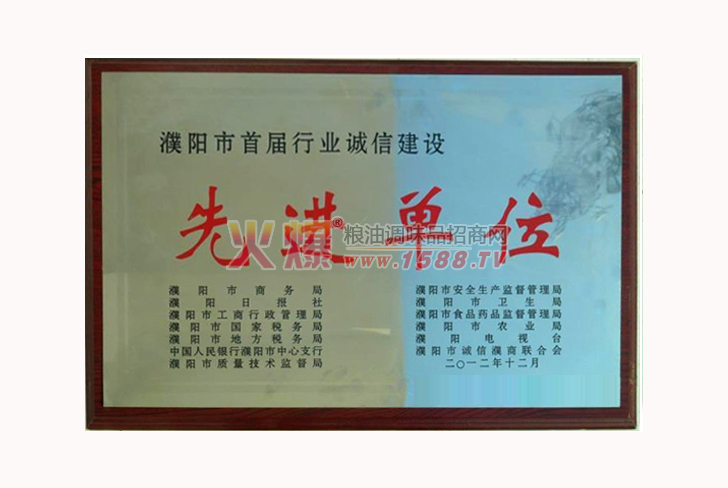 濮阳市首届行业诚信建设
先进单位
火爆®粮油调味品招商网
www.1588.TV
濮阳市商务局
濮阳日报社
濮阳市工商行政管理局
濮阳市国家税务局
濮阳市地方税务局
中国人民银行濮阳市中心支行
濮阳市质量技术监督局
濮阳市安全生产监督管理局
濮阳市卫生局
濮阳市食品药品监督管理局
濮阳市农业局
濮阳电视台
濮阳市诚信濮商联合会
二〇一二年十二月